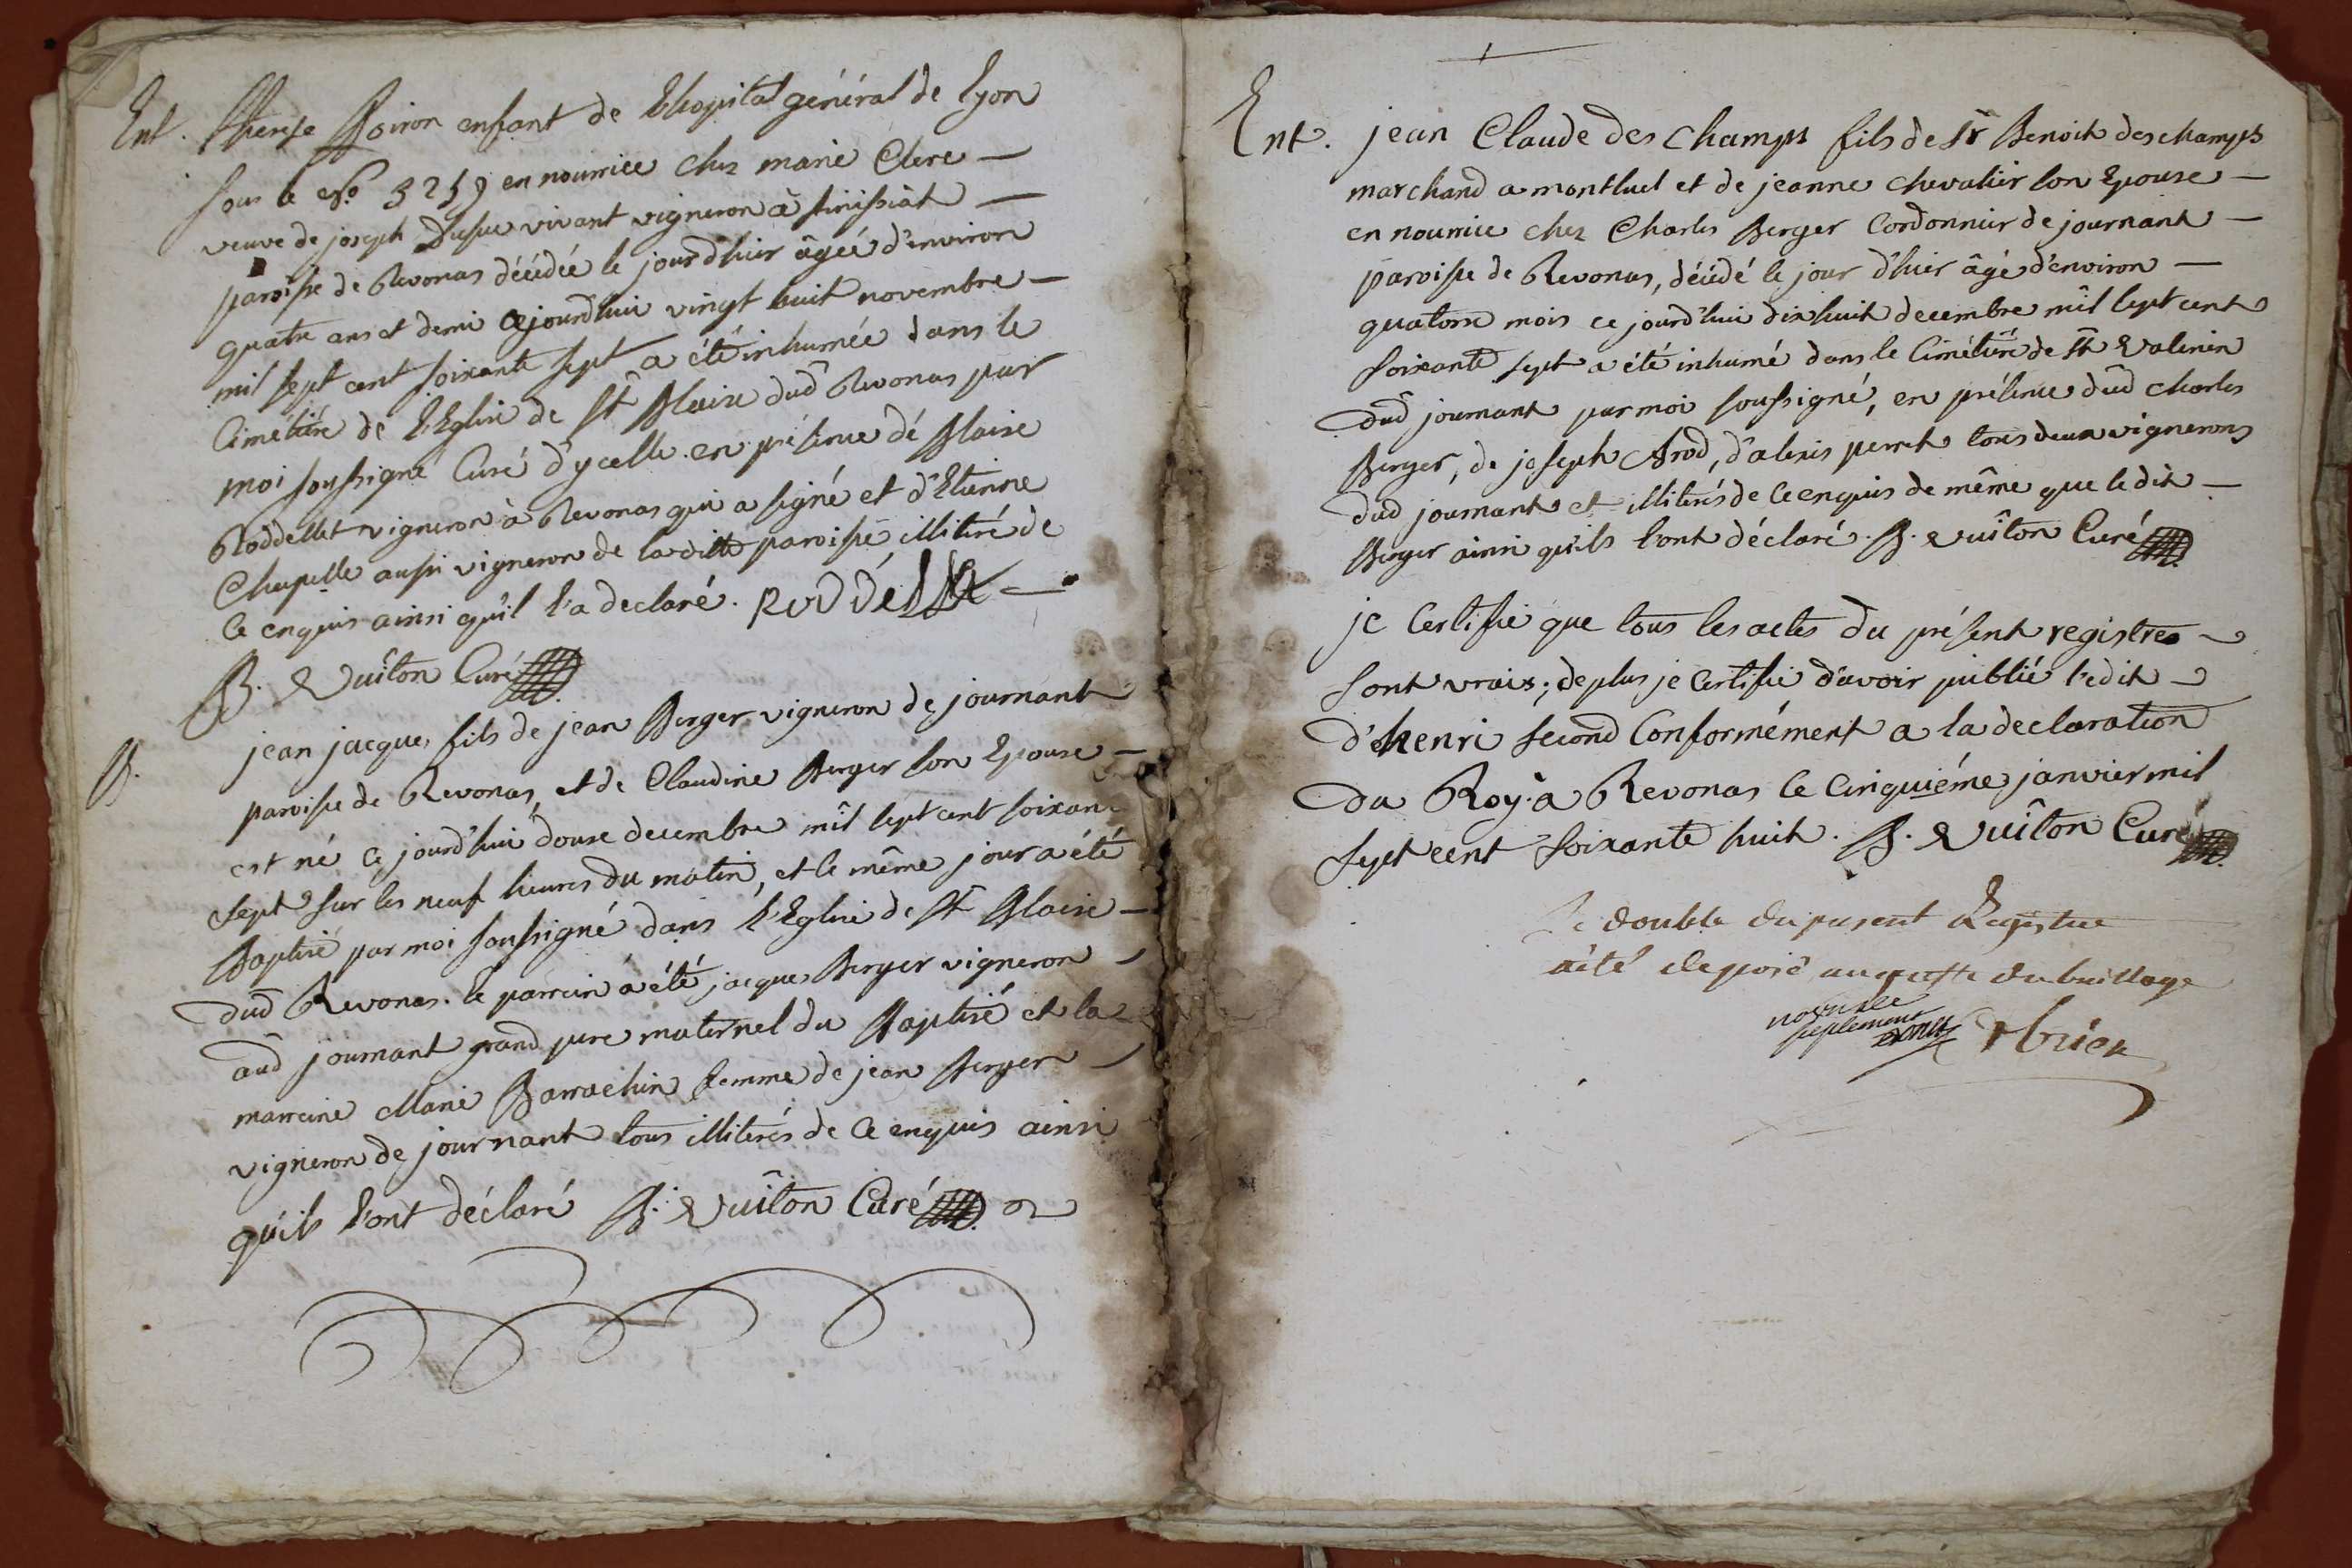 Ent. therese Boiron enfant de l'hopital général de lyon
sous le No. 3259 en nourrice chez marie Clerc
veuve de joseph vivant vigneron à sinissiat
paroisse de Revonas décédée le jour d'hier âgée d'environ
quatre ans et demi ce jourd'hui vingt huit novembre
mil sept cent soixante sept a été inhumée dans le
Cimétiére de l'Eglise de St Blaise dud Revonas par
moi soussigné Curé d'ycelle en présence de Blaise
Roddellet vigneron à Revonas qui a signé et d'Etienne
Chapelle aussi vigneron de la ditte paroisse illitéré de
ce enquis ainsi qu'il l'a declaré.
B. Vuîton Curé
B. jean jacques fils de jean Berger vigneron de journant
paroisse de Revonas, et de Claudine Berger son Epouse
est né ce jourd'hui douze decembre mil sept cent soixante
sept sur les neuf heures du matin, et le même jour a été
Baptisé par moi soussigné dans l'Eglise de St Blaise
dud Revonas. le parrein a été jacques Berger vigneron
aud journant grand pere maternel du Baptisé et la
marreine Marie Barrachin femme de jean Berger
vigneron de journant tous illiterés de ce enquis ainsi
qu'ils l'ont déclaré B. Vuîton Curé
Ent. jean Claude des Champs fils de Sr Benoit deschamps
marchand a montluel et de jeanne chevalier son Epouse
en nourrice chez Charles Berger Cordonnier de journant
paroisse de Revonas, décédé le jour d'hier âgé d'environ
quatorze mois ce jourd'hui dix huit decembre mil sept cent
soixante sept a été inhumé dans le Cimétiére de St Valerien
dud journant par moi soussigné, en présence dud Charles
Berger, de joseph Arod, d'alexis perret tous deux vignerons
dud journant et illiterés de ce enquis de même que le dit
Berger ainsi qu'ils l'ont déclaré. B. Vuîton Curé
je certifie que tous les actes du présent registre
sont vrais; de plus je certifie d'avoir publié l'edit
d'henri second conformément a la declaration
du Roy. à Revonas le cinquiéme janvier mil
sept cent soixante huit. B. Vuîton Curé
Le double du present Registre
a été déposé au greffe du bailliage